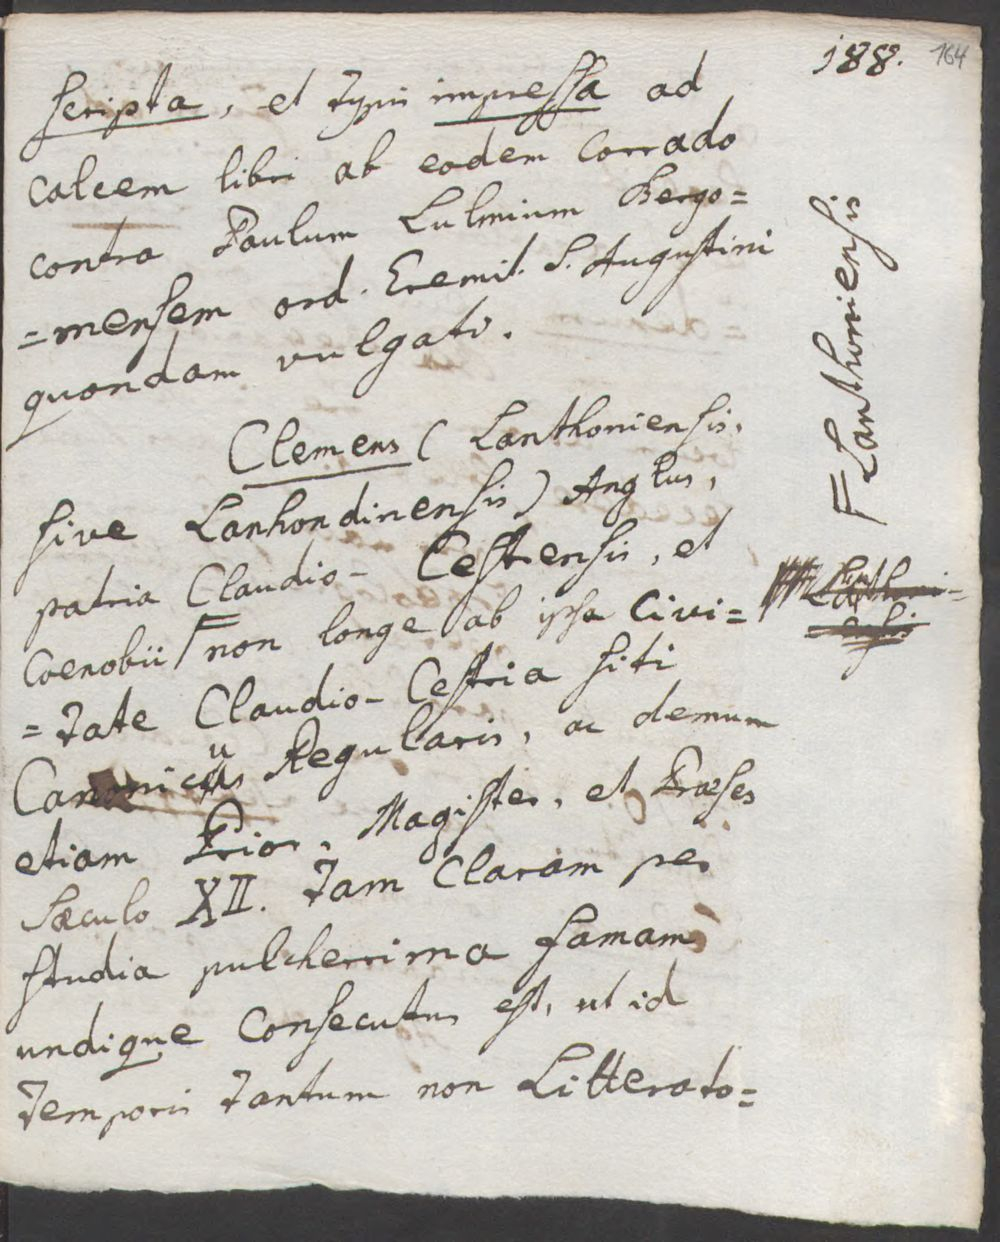 188. 164
scripta, et typis impressa ad
calcem libri ab eodem Corrado
contra Paulum Lulmium Bergo=
=mensem ord. Eremit. S. Augustini
quondam vulgati.
Clemens (Lanthoniensis,
sive Lanhondinensis) Anglus,
patria Claudio-Cestrensis, et
Coenobii ꟻ non longe ab ipsa Civi=
=tate Claudio-Cestria siti
Canonicus Regularis, ac demum
etiam Prior, Magister, et Præses
Sæculo XII. tam Claram per
studia pulcherrima famam
undique Consecutus est, ut id
temporis tantum non Litterato=
ꟻ Lanthoniensis